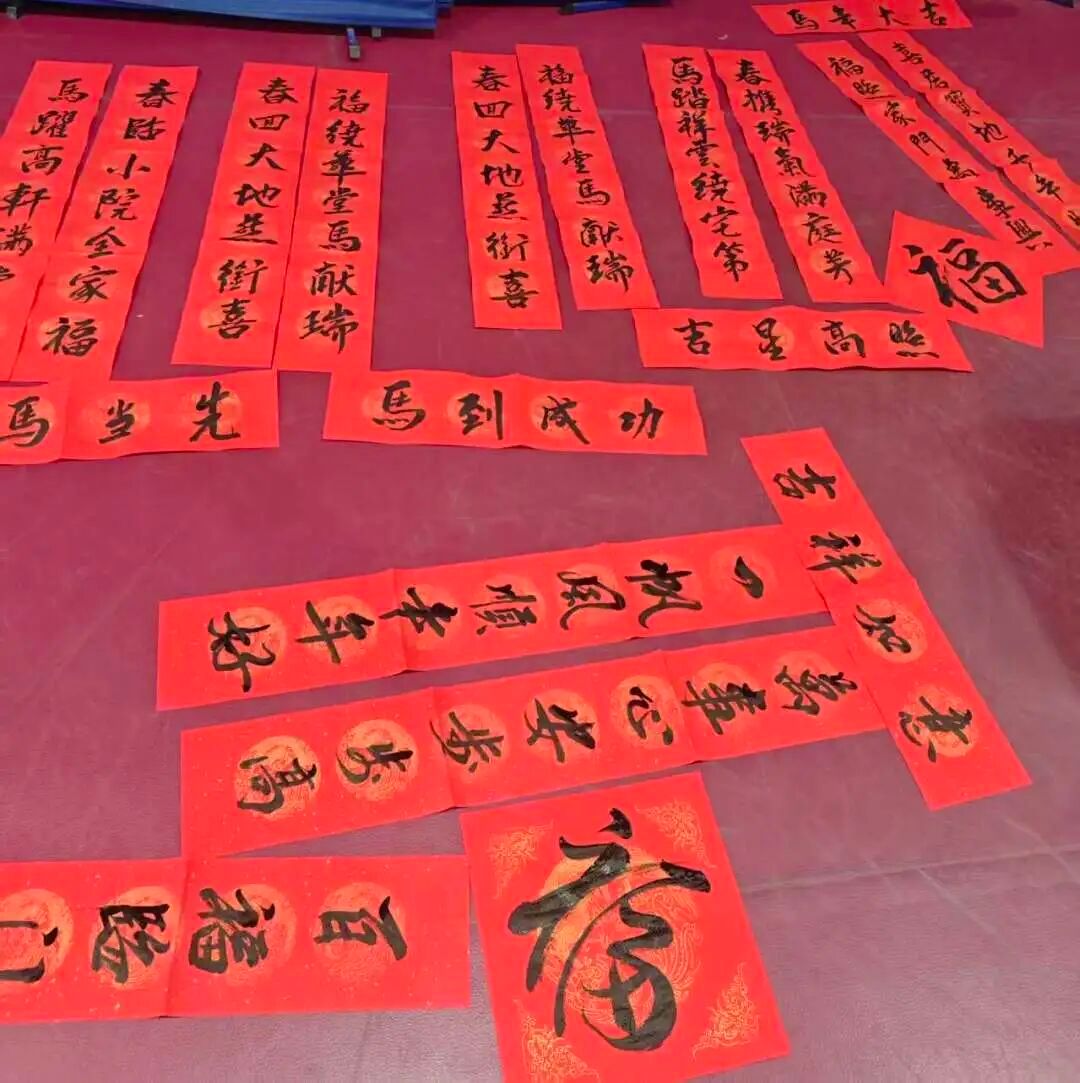 馬年大吉
喜居寶地千年
福照家門萬事興
福
春攜瑞氣滿庭芳
馬踏祥雲繞宅第
吉星高照
福绕華堂馬献瑞
春回大地燕銜喜
馬到成功
福绕華堂馬献瑞
春回大地燕銜喜
馬當先
春臨小院全家福
馬躍高軒满
吉祥如意
一帆風順年年好
萬事心安步步高
福
百福臨门